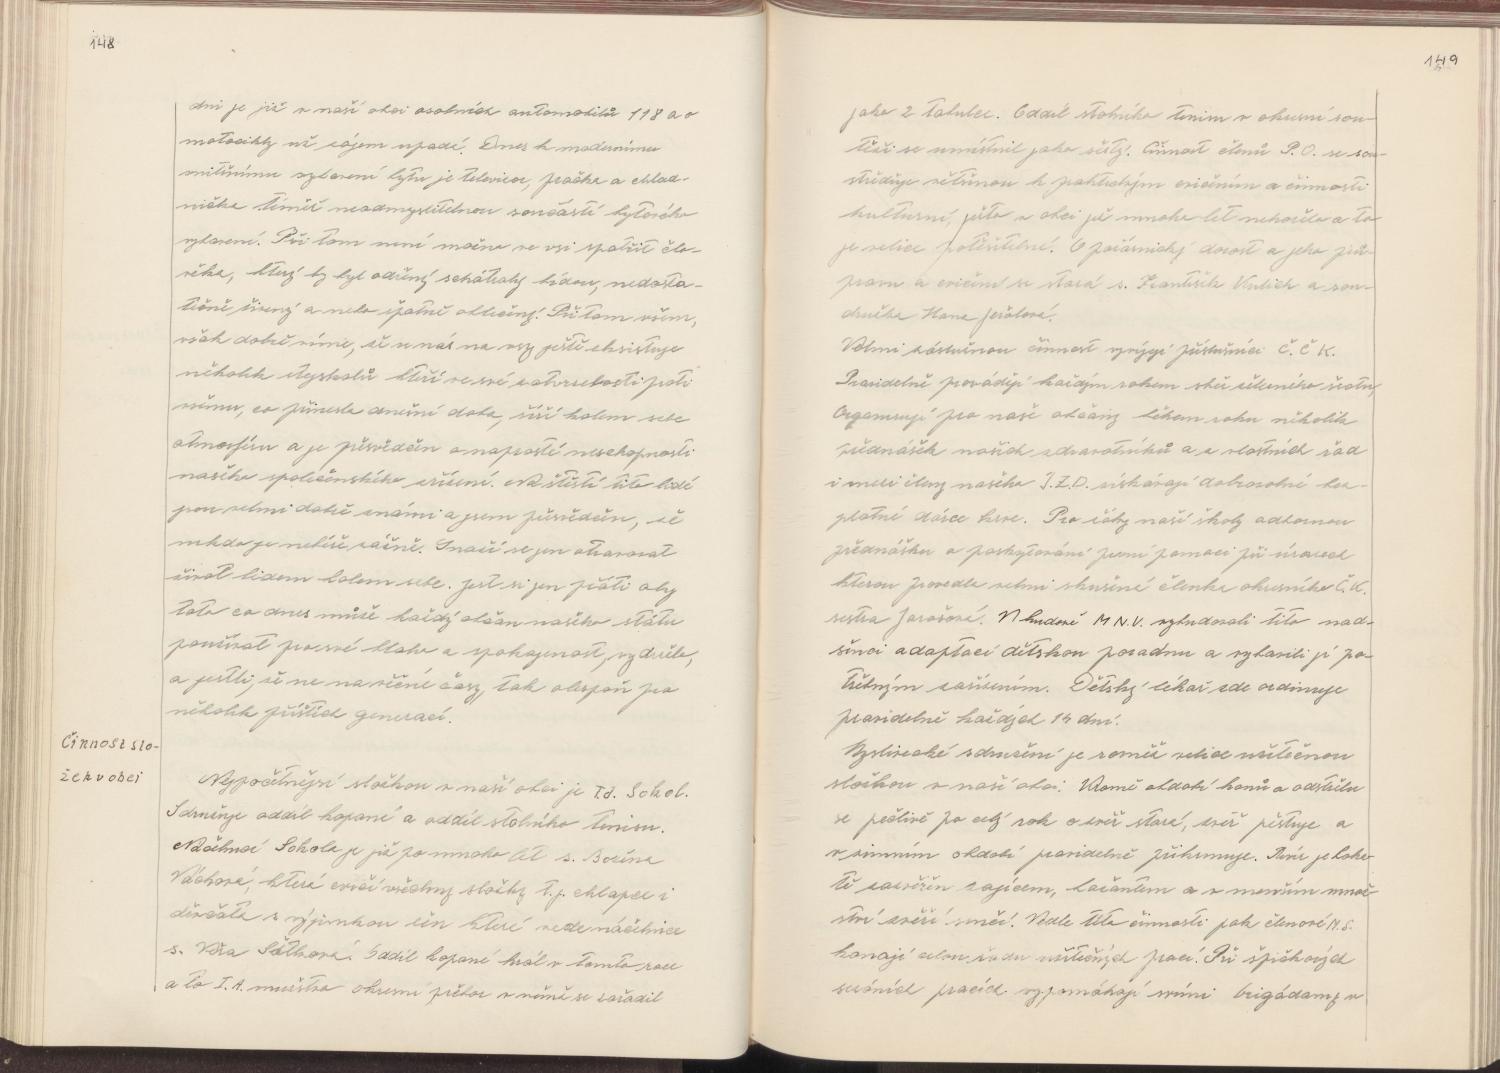 148
dni je již v naší obci osobních automobilů 118 a o
motocikly už zájem upadé. Dnes k modernímu
vnitřnímu vybavení bytu je televizor, pračka a chlad-
nička téměř neodmyslitelnou součástí bytového
vybavení. Při tom není možno ve vsi spatřit člo-
věka, který by byl odřený sešátralý bídou, nedosta-
tečně živený a nebo špatně oblečený. Při tom všem,
však dobře víme, že u nás na vsy ještě eksistuje
několik kteří ve své zatvrzelosti proti
všemu, co přinesla dnešní doba, šíří kolem sebe
atmosféru a je přesvědčen o naprosté neschopnosti
našeho společenského zřízení. Na štěstí tito lidé
jsou velmi dobře známi a jsem přesvědčen, že
nikdo je nebéře vážně. Snaží se jen otravovat
život lidem kolem sebe. Jest si jen přáti aby
toto co dnes může každý občan našeho státu
používat pro své blaho a spokojenost, vydrželo,
a jestli, že ne na věčné časy, tak alespoň pro
několik příštích generací.
Činnost slo-
žek v obci
Nejpočetnější složkou v naší obci je T.J. Sokol.
Sdružuje oddíl kopané a oddíl stolního tenisu.
Náčelnicí Sokola je již po mnoho let s. Božena
Váchová, které cvičí všechny složky t.j. chlapce i
děvčata s výjimkou žen které vede náčelnice
s. Věra Sátková. Oddíl kopané hrál v tomto roce
a to I. A. mužstvo okresní přebor v němž se zařadil
149
jako 2 tabulce. Oddíl stolního tenisu v okresní sou-
těži se umístnil jako šestý. Činnost členů P.O. se sou-
střeďuje většinou k praktickým cvičením a činnosti
kulturní, ježto v obci již mnoho let nehořelo a to
je velice potěšitelné. O požárnický dorost a jeho pří-
pravu a cvičení se stará s. František Vulich a sou-
družka Hana Jeřálová.
Velmi záslužnou činnost vyvíjejí příslušníci Č. Č K.
Pravidelně provádějí každým rokem sběr léčivého šrotu,
Organisují pro naše občany během roku několik
přednášek našich zdravotníků a z vlastních řad
i mezi členy našeho J.Z.D. získávají dobrovolné bez-
platné dárce krve. Pro žáky naší školy odbornou
přednášku o poskytování první pomoci při úrazech
kterou provedla velmi zkušená členka okresního Č.K.
sestra Jarošová. V budově M N.V. vybudovali tito nad-
šenci adaptací dětskou poradnu a vybavili jí po-
třebným zařízením. Dětský lékař zde ordinuje
pravidelně každých 14 dní.
Myslivecké sdružení je rovněž velice užitečnou
složkou v naší obci. Kromě období honů a odstřelu
se pečlivě po celý rok o zvěř stará, zvěř pěstuje a
v zimním období pravidelně přikrmuje. Revír je boha-
tě zazvěřen zajícem, bažantem a v menším množ-
ství zvěří srnčí. Vedle této činnosti pak členové M.S.
konají celou řadu užitečných prací. Při špičkových
sezóních pracích vypomáhají svými brigádamy v